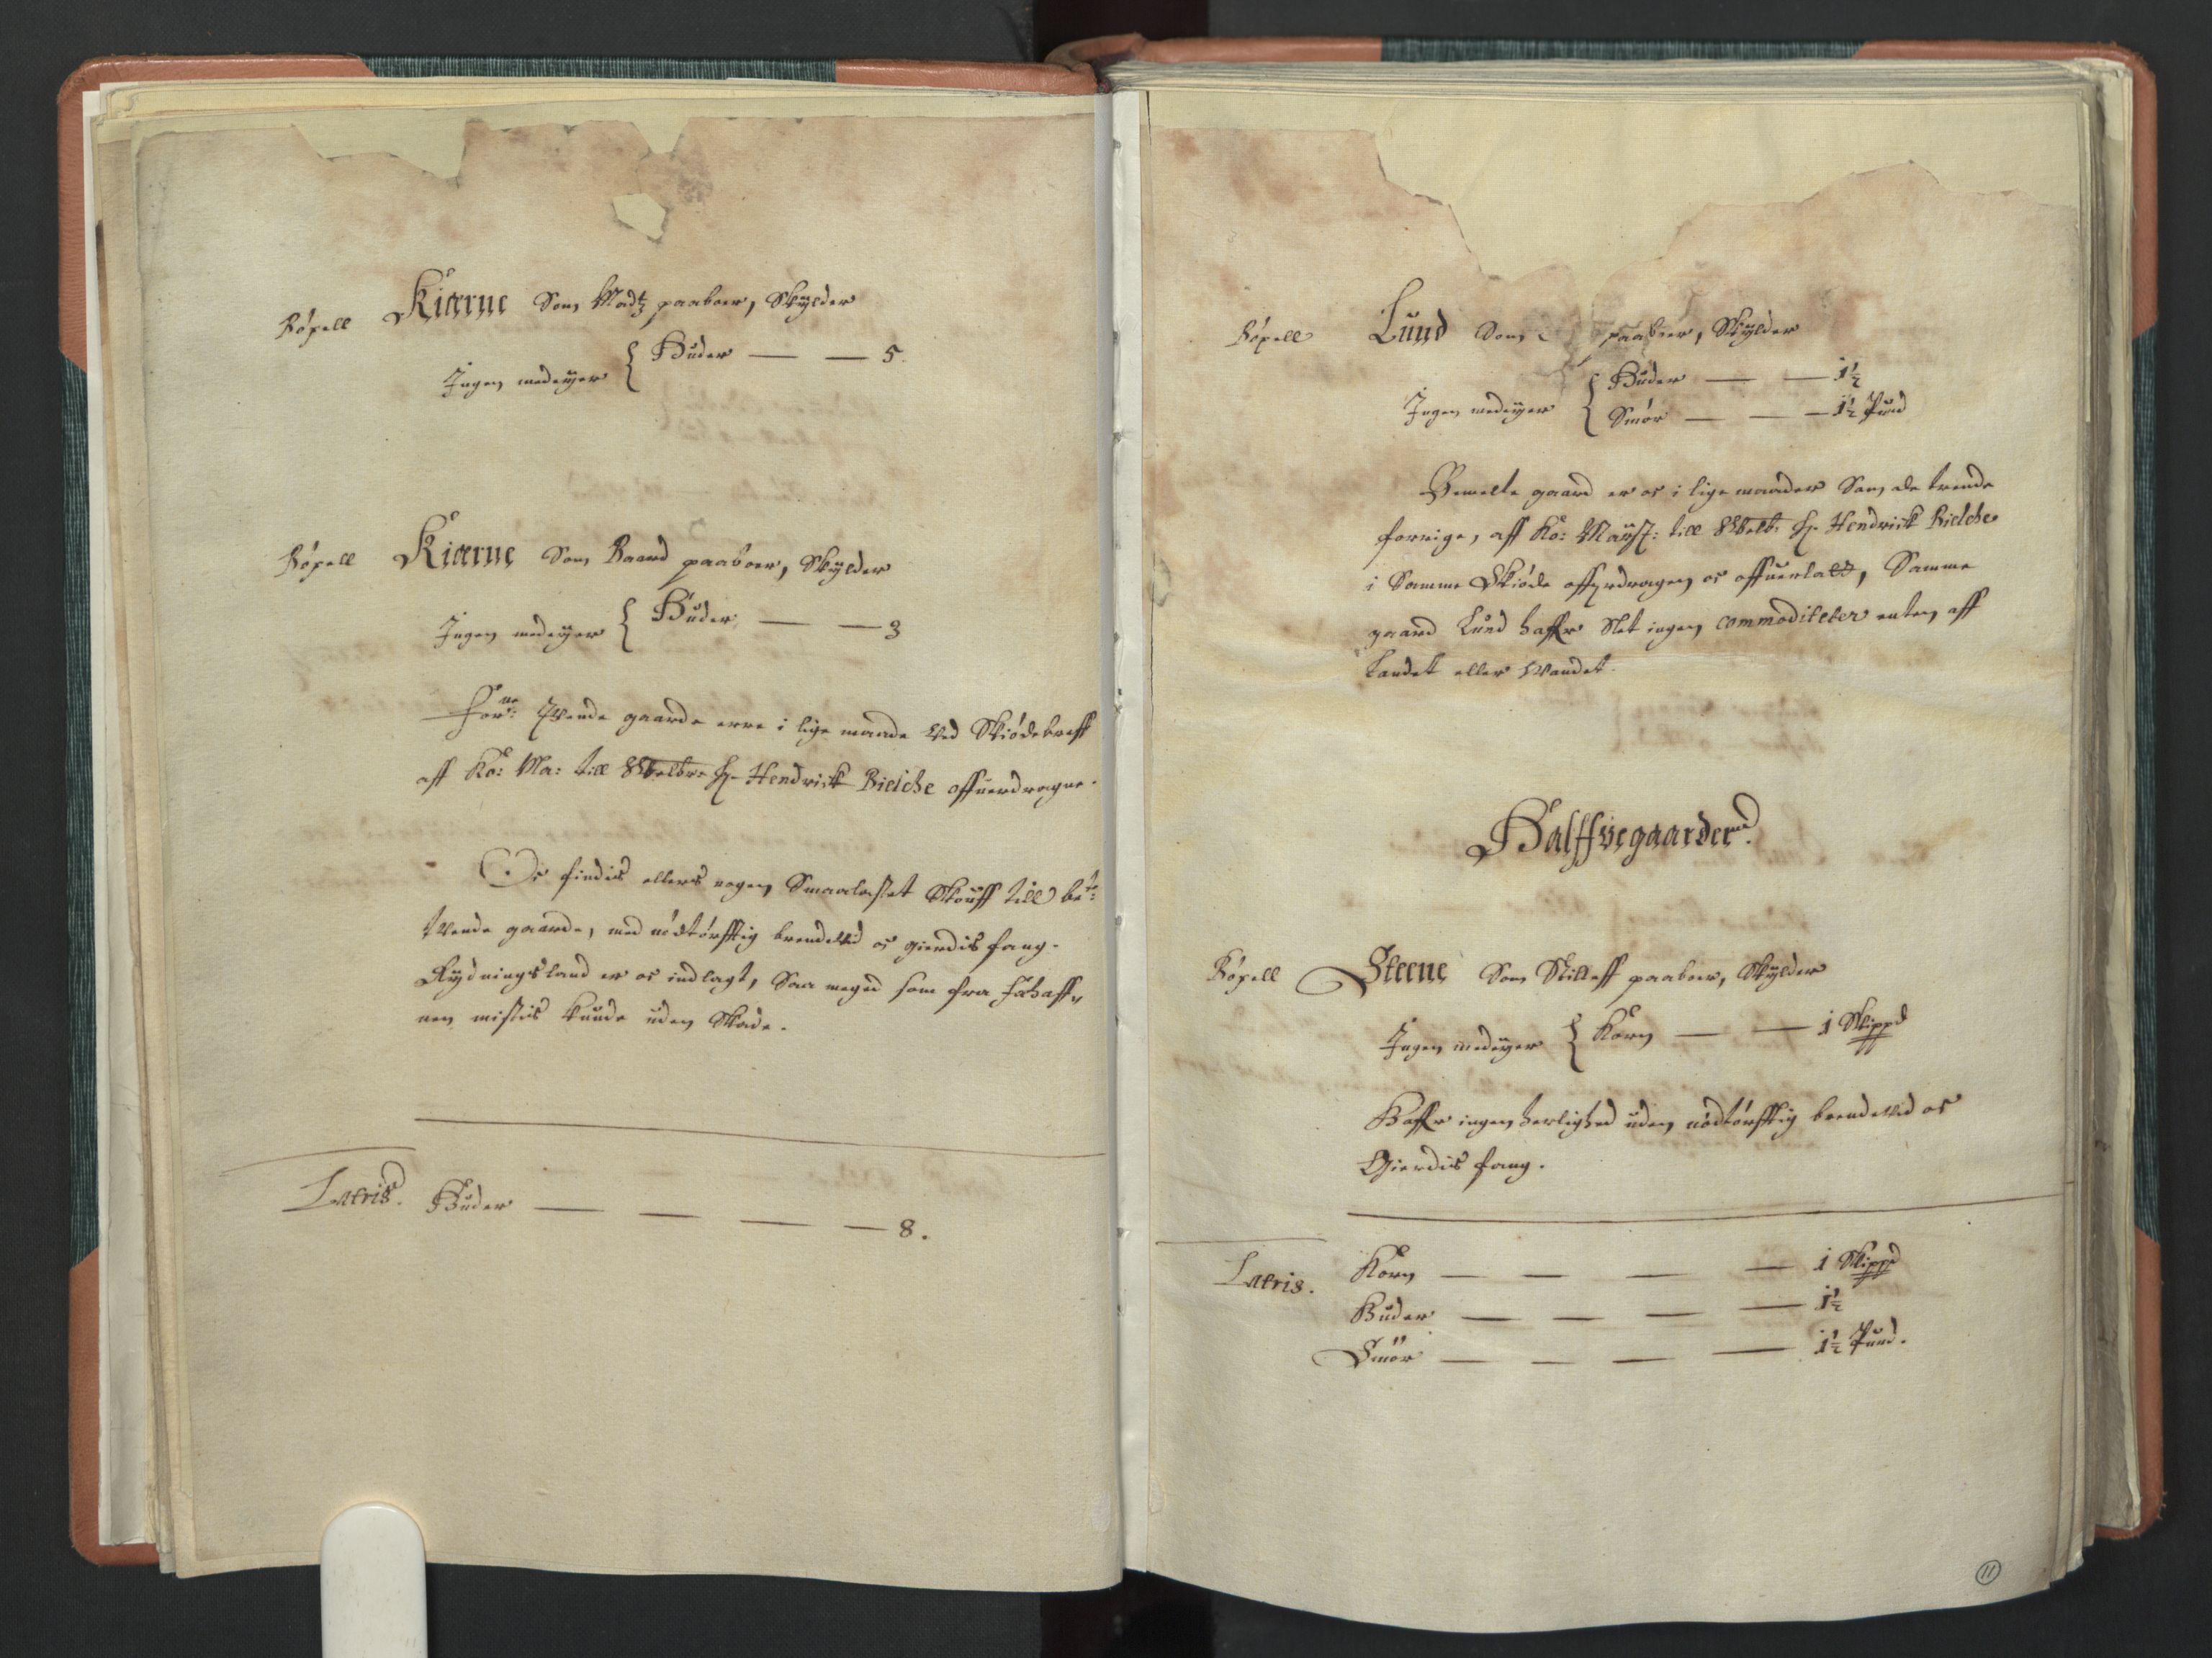 Bøxell Kiærne Som Madtz paaboer, Skylder
Ingen medeyer { Huder — — 5.
Bøxell Kiærne Som Baard paaboer, Skylder
Ingen medeyer { Huder — — 3
For:ne Tvende gaarde erre i lige maade Ved Skiødebreff
aff Ko: Ma: till Welb: H: Hendrick Bielche offuerdragne.
Der findis ellers nogen Smaalastet Skouff till be:te
tvende gaarde, med nødtørfftig brendeVed oc gierdis fang.
Rydningsland er oc indlagt, Saa meget som fra Fæhaff„
nen mistis kunde uden Skade.
Lateris. Huder — — — — 8.
Bøxell Lund Som paaboer, Skylder
Ingen medeyer { Huder — — 1½
Smør — — — 1½ Pund
Bemelte gaard er oc i lige maader Som de trende
forrige, aff Ko: Mayst: till Welb: H: Hendrick Bielche
i Samme Skiøde offuerdragen oc offuerladt, Samme
gaard Lund haffr Slet ingen commoditeter enten aff
Landet eller Vandet.
Halffvegaarderne.
Bøxell Steene Som Killeff paaboer, Skylder
Ingen medeyer { Korn — — 1 Skippd
Haffr ingen herlighed uden nødtørfftig brendeVed oc
Gierdis fang.
Lateris. Korn — — — — 1 Skippd
Huder — — — — 1½
Smør — — — — 1½ Pund.
11